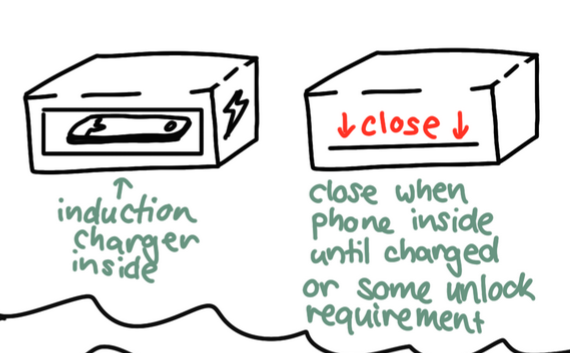 ↓close↓
↑
induction
charger
inside
close when
phone inside
until charged
or some unlock
requirement